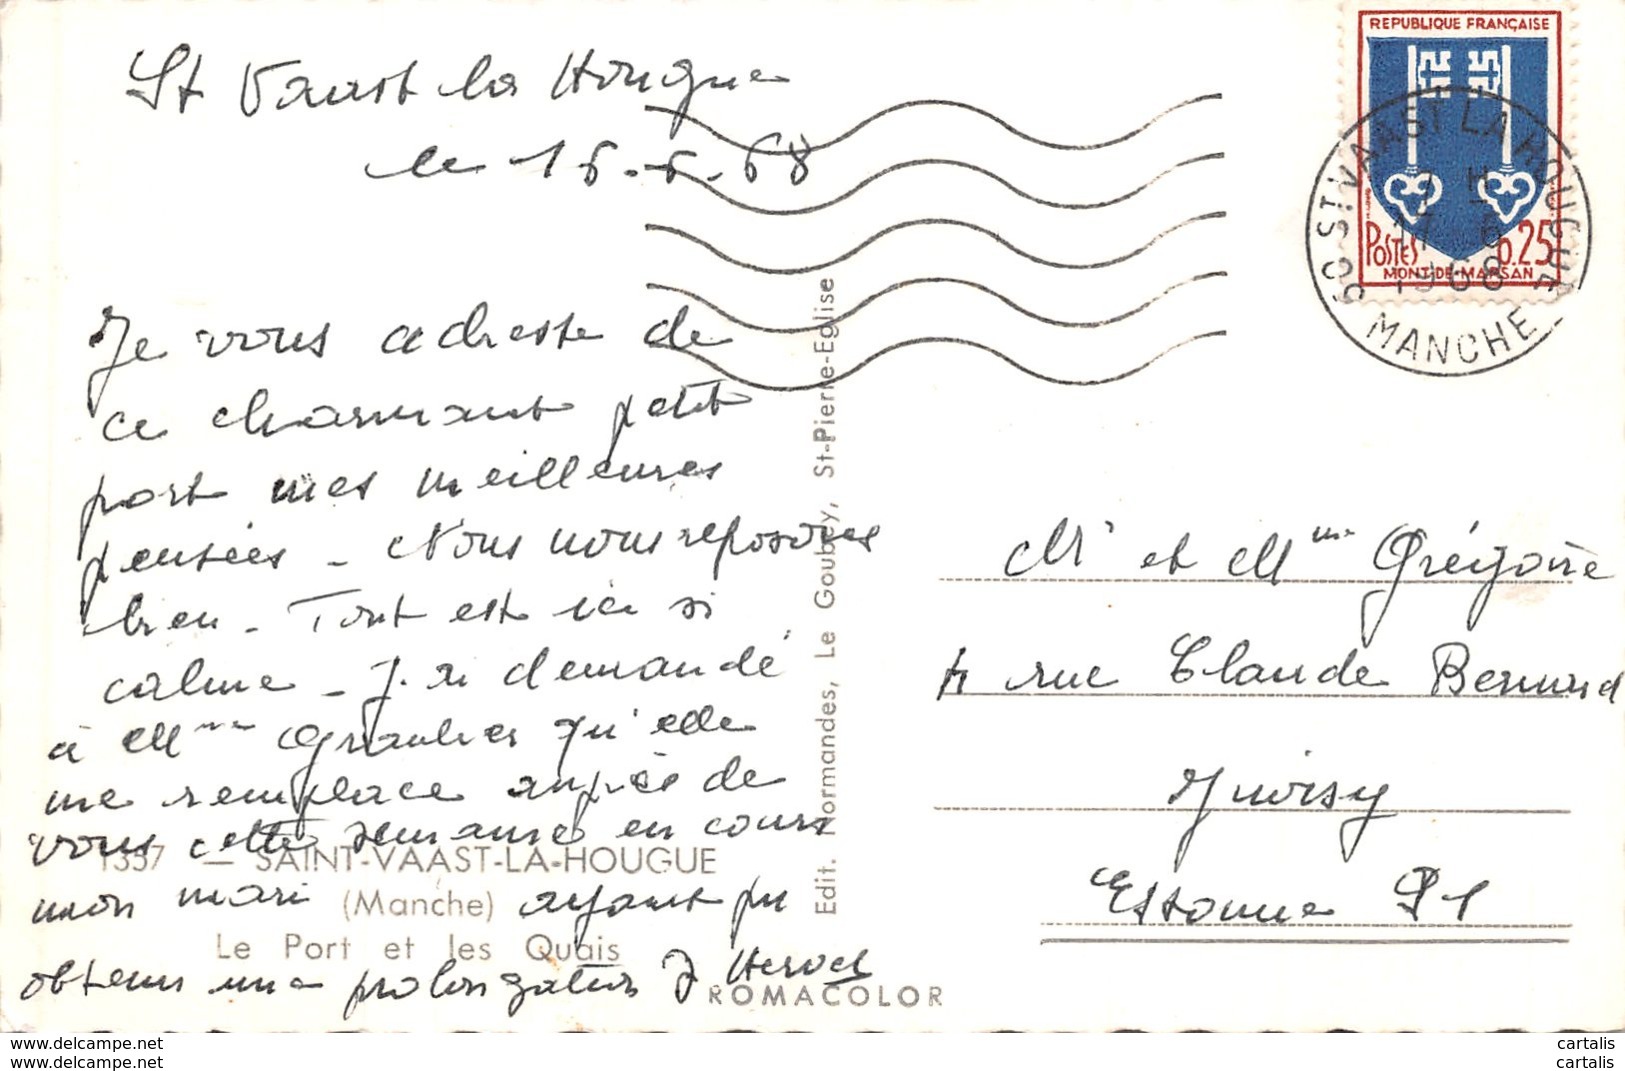 St Vaast la Hougue
le 16.6.68
Je vous adresse de
ce charmant petit
port mes meilleures
pensées - Nous nous reposons
bien - Tout est ici si
calme - J. ai demandé
à Mme qu'elle
me remplace auprès de
vous cette semaine en cours
mon mari ayant pu
obtenir une prolongation J Hervet
1357 - SAINT-VAAST-LA-HOUGUE
(Manche)
Le Port et les Quais
Edit. Normandes, Le Goubey, St-Pierre-Eglise
ROMACOLOR
REPUBLIQUE FRANÇAISE
POSTES 0.25
MONT-DE-MARSAN
50 ST VAAST LA HOUGUE
17 - 6
1968
MANCHE
Mr et Mme Grégoire
rue Claude Bernard
Juvisy
Essonne 91
cartalis
cartalis
www.delcampe.net
www.delcampe.net